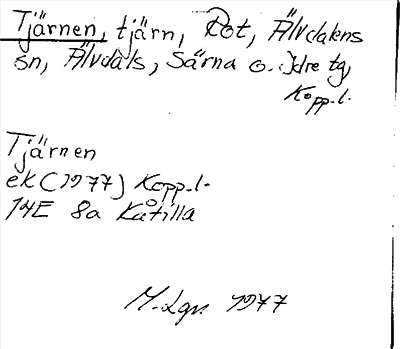 Tjärnen, tjärn, Rot, Älvdalens
sn, Älvdals, Särna o. Idre tg,
Kopp.l.
Tjärnen
ek (1977) Kopp.l.
14E 8a Kåtilla
M.Lgr. 1977